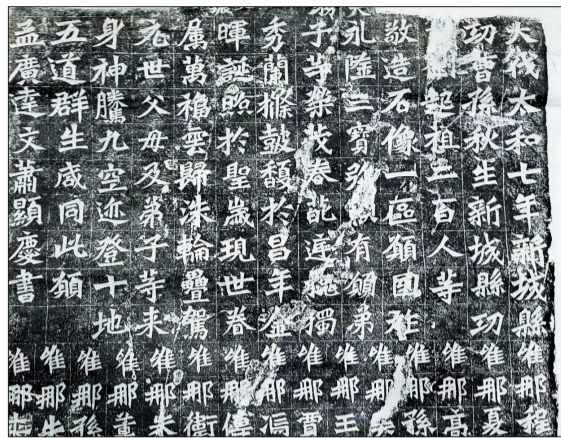 大代太和七年新城縣
功曹孫秋生新城縣功
劉起祖二百人等
敬造石像一區願國祚
永隆三寶彌顯有願弟
子等榮茂春葩庭槐獨
秀蘭條鼓馥於昌年金
暉誕照於聖歲現世眷
屬萬福雲歸洙輪疊駕
元世父母及弟子等來
身神騰九空迹登十地
五道群生咸同此願
孟廣達文蕭顯慶書
維那程
維那夏
維那高
維那孫
維那
維那王
維那賈
維那馮
維那
維那衛
維那朱
維那董
維那孫
維那